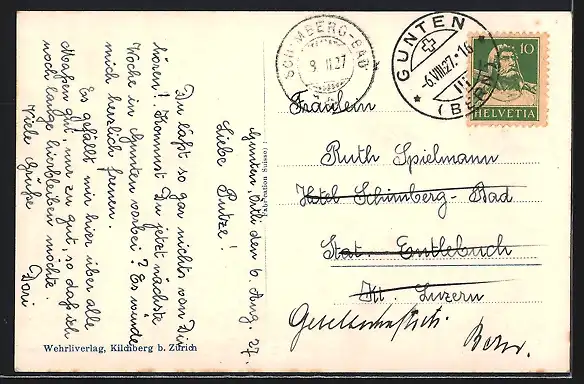 Gunten, Villi den 6. Aug. 27.
Liebe Putze!
Du läßt so gar nichts von Dir
hören! Kommst Du jetzt nächste
Woche in Gunten vorbei? Es würde
mich herzlich freuen.
Es gefällt mir hier über alle
Maßen gut, nur zu gut, so daß ich
noch lange hierbleiben möchte.
Viele Grüße
Dori
Wehrliverlag, Kilchberg b. Zürich
SCHIMBERG-BAD
9 27
GUNTEN
-6.VIII.27.-16
(BERN)
10
HELVETIA
Fräulein
Ruth Spielmann
Hotel Schimberg-Bad
Stat. Entlebuch
Kt. Luzern
Bern.